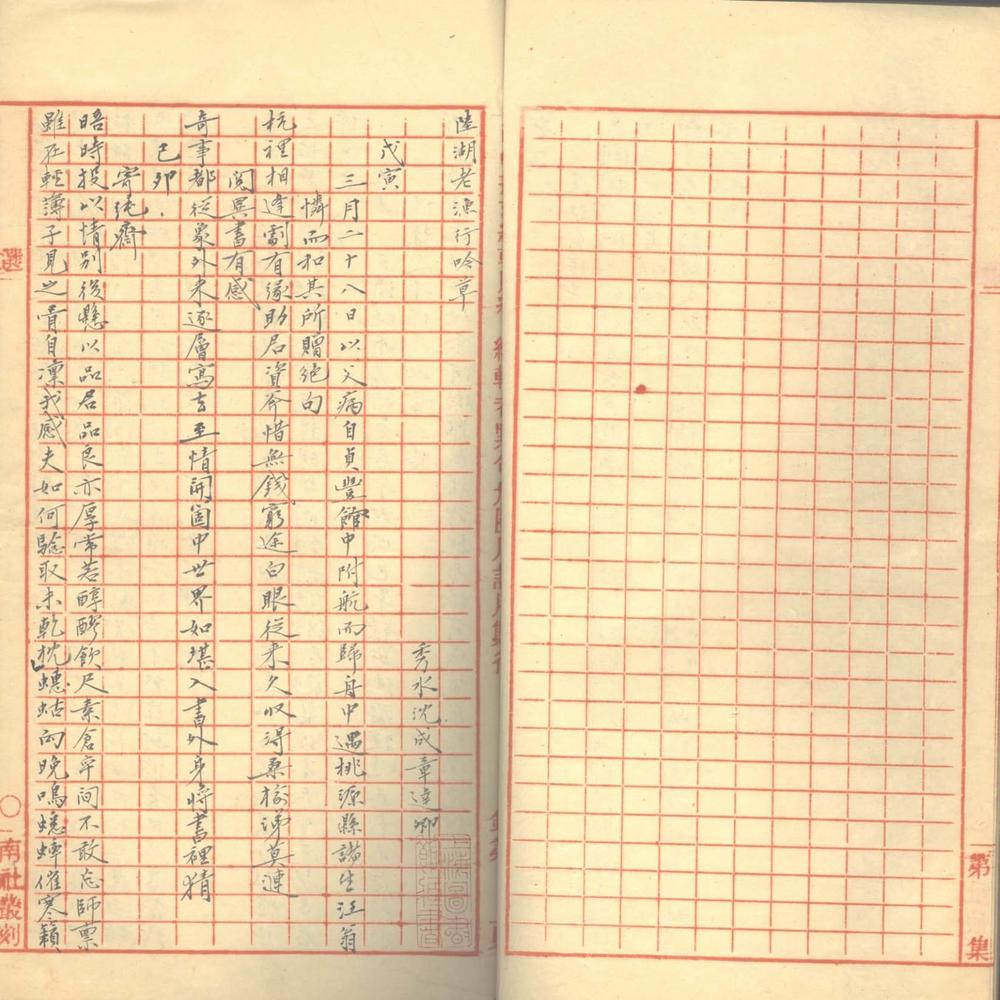 第 集
陸湖老漁行吟草
秀水沈成章達卿
戊寅
三月二十八日以父病自貞豐館中附航而歸舟中遇桃源縣諸生汪翁
憐而和其所贈絕句
杭裡相逢劇有緣助君資斧惜無錢窮途白眼從来久収得桑榆涕莫漣
閱異書有感
奇事都從象外来逐層寫去至情開箇中世界如堪入書外身將書裡猜
己卯
寄純齋
晤時投以情別後懸以品君品良亦厚常若醇醪飲尺素倉卒間不敢忘師稟
雖在輕薄子見之骨自凜我感夫如何驗取未乾枕蟪蛄向晚鳴蟋蟀催寒籟
選 〇 南社叢刻